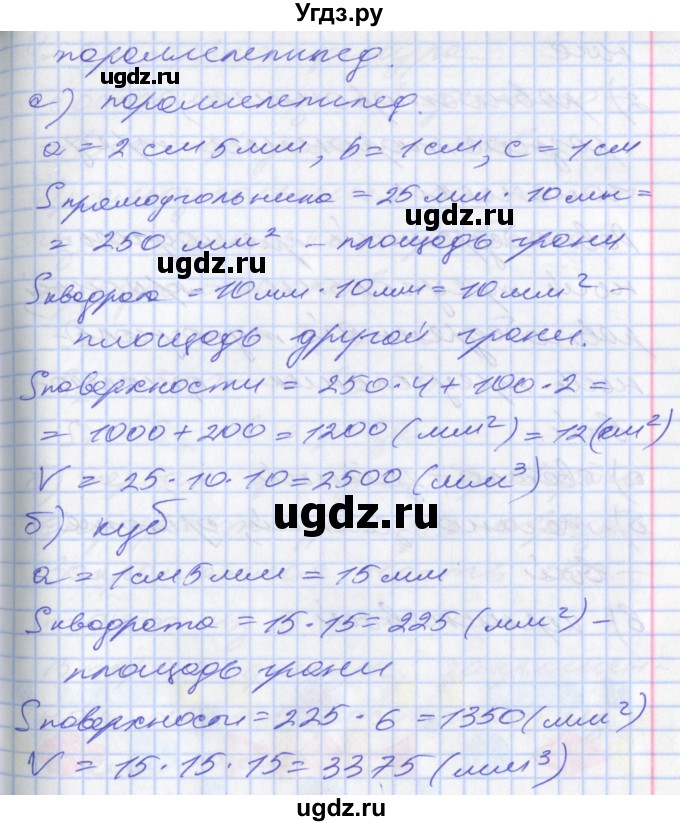 Угдз.ру
пораллелепипед.
ugdz.ru
а) пораллелепипед.
а = 2 см 5 мм, b = 1 см, с = 1 см
Sпрямоугольника = 25 мм · 10 мм =
ugdz.ru
= 250 мм² – площадь грани
ugdz.ru
Sквадрата = 10 мм · 10 мм = 10 мм² –
площадь другой грани.
Sповерхности = 250 · 4 + 100 · 2 =
= 1000 + 200 = 1200 (мм²) = 12 (см²)
V = 25 · 10 · 10 = 2500 (мм³)
ugdz.ru
б) куб
а = 1 см 5 мм = 15 мм
Sквадрата = 15 · 15 = 225 (мм²) –
площадь грани
Sповерхности = 225 · 6 = 1350 (мм²)
V = 15 · 15 · 15 = 3375 (мм³)
ugdz.ru